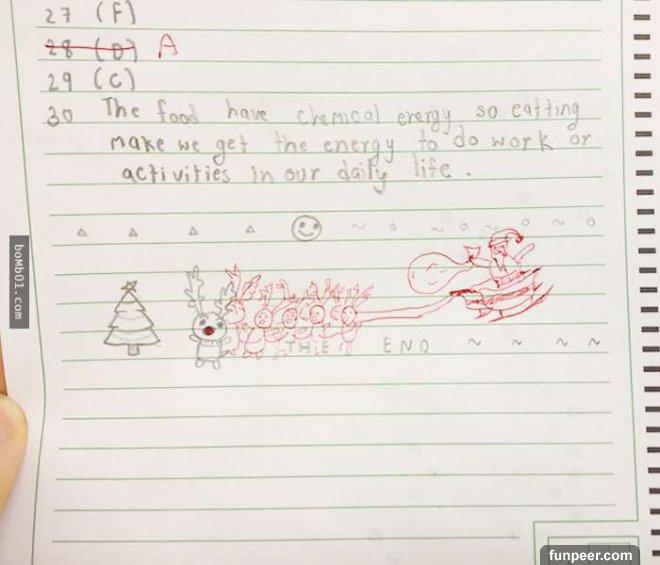 27 (F)
28 (D) A
29 (C)
30 The food have chemical energy so eatting
make we get the energy to do work or
activities in our daily life.
THE END ~ ~ ~ ~
bomb01.com
funpeer.com